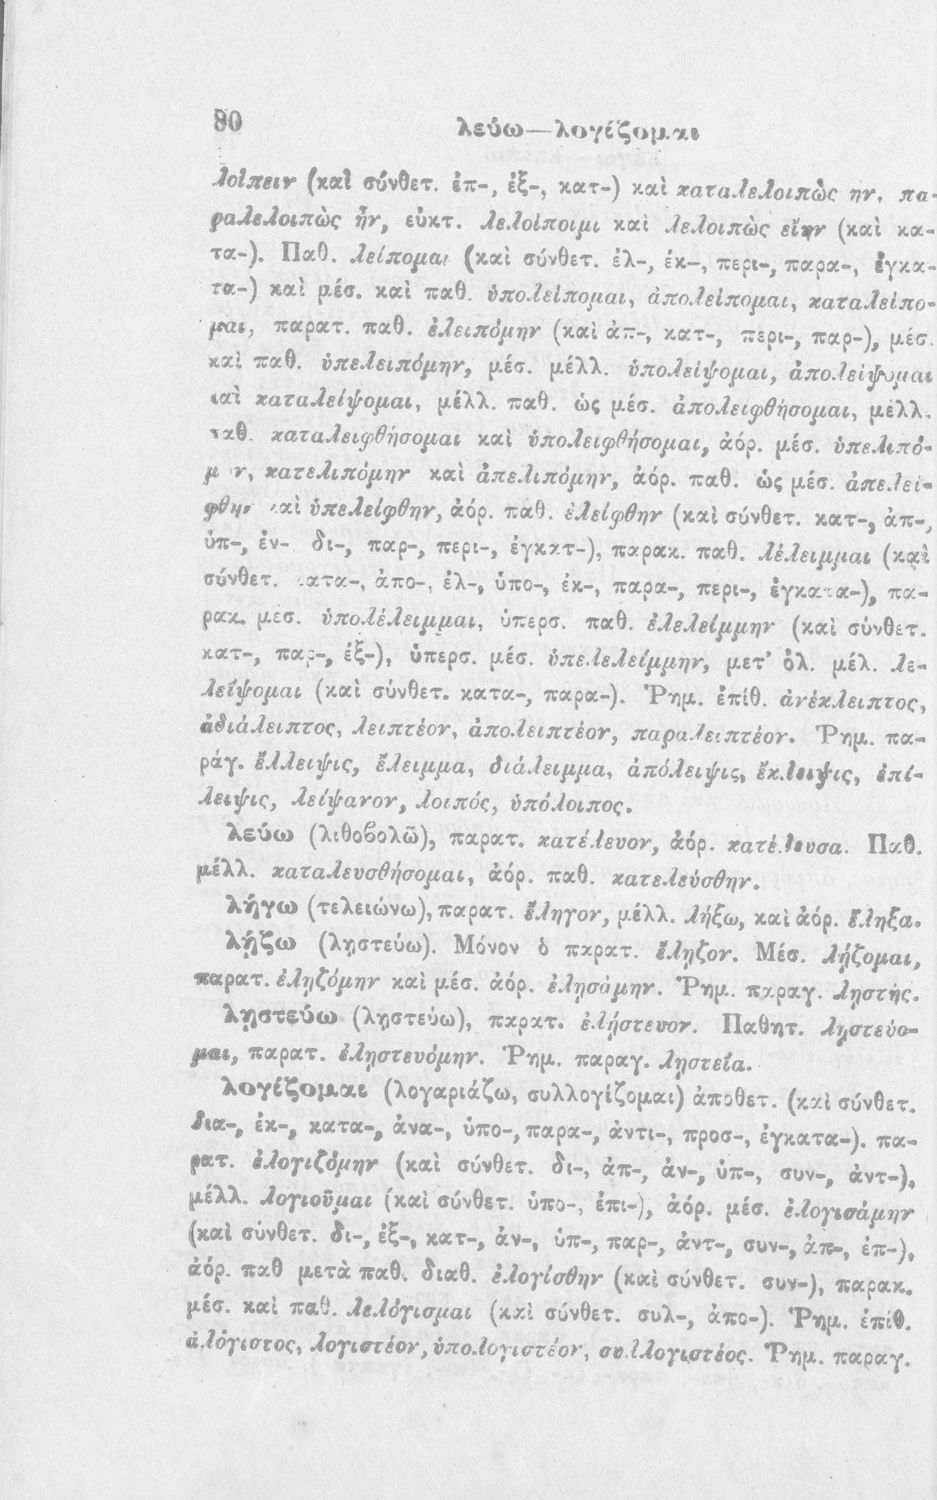 90
λεύω—λογίζομαι
λοίπειν (καὶ σύνθετ. ἐπ-, ἐξ-, κατ-) καὶ καταλελοιπὼς ην, πα-
ραλελοιπὼς ἦν, εὐκτ. λελοίποιμι καὶ λελοιπὼς εἴην (καὶ κα-
τα-). Παθ. λείπομαι (καὶ σύνθετ. ἐλ-, ἐκ-, περι-, παρα-, ἐγκα-
τα-) καὶ μέσ. καὶ παθ. ὑπολείπομαι, ἀπολείπομαι, καταλείπο-
μαι, παρατ. παθ. ἐλειπόμην (καὶ ἀπ-, κατ-, περι-, παρ-), μέσ.
καὶ παθ. ὑπελειπόμην, μέσ. μέλλ. ὑπολείψομαι, ἀπολείψομαι
καὶ καταλείψομαι, μέλλ. παθ. ὡς μέσ. ἀπολειφθήσομαι, μέλλ.
παθ. καταλειφθήσομαι καὶ ὑπολειφθήσομαι, ἀόρ. μέσ. ὑπελιπό-
μην, κατελιπόμην καὶ ἀπελιπόμην, ἀόρ. παθ. ὡς μέσ. ἀπελεί-
φθην καὶ ὑπελείφθην, ἀόρ. παθ. ἐλείφθην (καὶ σύνθετ. κατ-, ἀπ-,
ὑπ-, ἐν- δι-, παρ-, περι-, ἐγκατ-), παρακ. παθ. λέλειμμαι (καὶ
σύνθετ. κατα-, ἀπο-, ἐλ-, ὑπο-, ἐκ-, παρα-, περι-, ἐγκατα-), πα-
ρακ. μέσ. ὑπολέλειμμαι, ὑπερσ. παθ. ἐλελείμμην (καὶ σύνθετ.
κατ-, παρ-, ἐξ-), ὑπερσ. μέσ. ὑπελελείμμην, μετ' ὀλ. μέλ. λε-
λείψομαι (καὶ σύνθετ. κατα-, παρα-). Ῥημ. ἐπίθ. ἀνέκλειπτος,
ἀδιάλειπτος, λειπτέον, ἀπολειπτέον, παραλειπτέον. Ῥημ. πα-
ράγ. ἔλλειψις, ἔλειμμα, διάλειμμα, ἀπόλειψις, ἔκλειψις, ἐπί-
λειψις, λείψανον, λοιπός, ὑπόλοιπος.
λεύω (λιθοβολῶ), παρατ. κατέλευον, ἀόρ. κατέλευσα. Παθ.
μέλλ. καταλευσθήσομαι, ἀόρ. παθ. κατελεύσθην.
λήγω (τελειώνω), παρατ. ἔληγον, μέλλ. λήξω, καὶ ἀόρ. ἔληξα.
λῄζω (λῃστεύω). Μόνον ὁ παρατ. ἔλῃζον. Μέσ. λῄζομαι,
παρατ. ἐλῃζόμην καὶ μέσ. ἀόρ. ἐλῃσάμην. Ῥημ. παραγ. λῃστής.
λῃστεύω (λῃστεύω), παρατ. ἐλῄστευον. Παθητ. λῃστεύο-
μαι, παρατ. ἐλῃστευόμην. Ῥημ. παραγ. λῃστεία.
λογίζομαι (λογαριάζω, συλλογίζομαι) ἀποθετ. (καὶ σύνθετ.
δια-, ἐκ-, κατα-, ἀνα-, ὑπο-, παρα-, ἀντι-, προσ-, ἐγκατα-). πα-
ρατ. ἐλογιζόμην (καὶ σύνθετ. δι-, ἀπ-, ἀν-, ὑπ-, συν-, ἀντ-),
μέλλ. λογιοῦμαι (καὶ σύνθετ. ὑπο-, ἐπι-), ἀόρ. μέσ. ἐλογισάμην
(καὶ σύνθετ. δι-, ἐξ-, κατ-, ἀν-, ὑπ-, παρ-, ἀντ-, συν-, ἀπ-, ἐπ-),
ἀόρ. παθ μετὰ παθ. διαθ. ἐλογίσθην (καὶ σύνθετ. συν-), παρακ.
μέσ. καὶ παθ. λελόγισμαι (καὶ σύνθετ. συλ-, ἀπο-). Ῥημ. ἐπίθ.
ἀλόγιστος, λογιστέον, ὑπολογιστέον, συλλογιστέος. Ῥημ. παραγ.